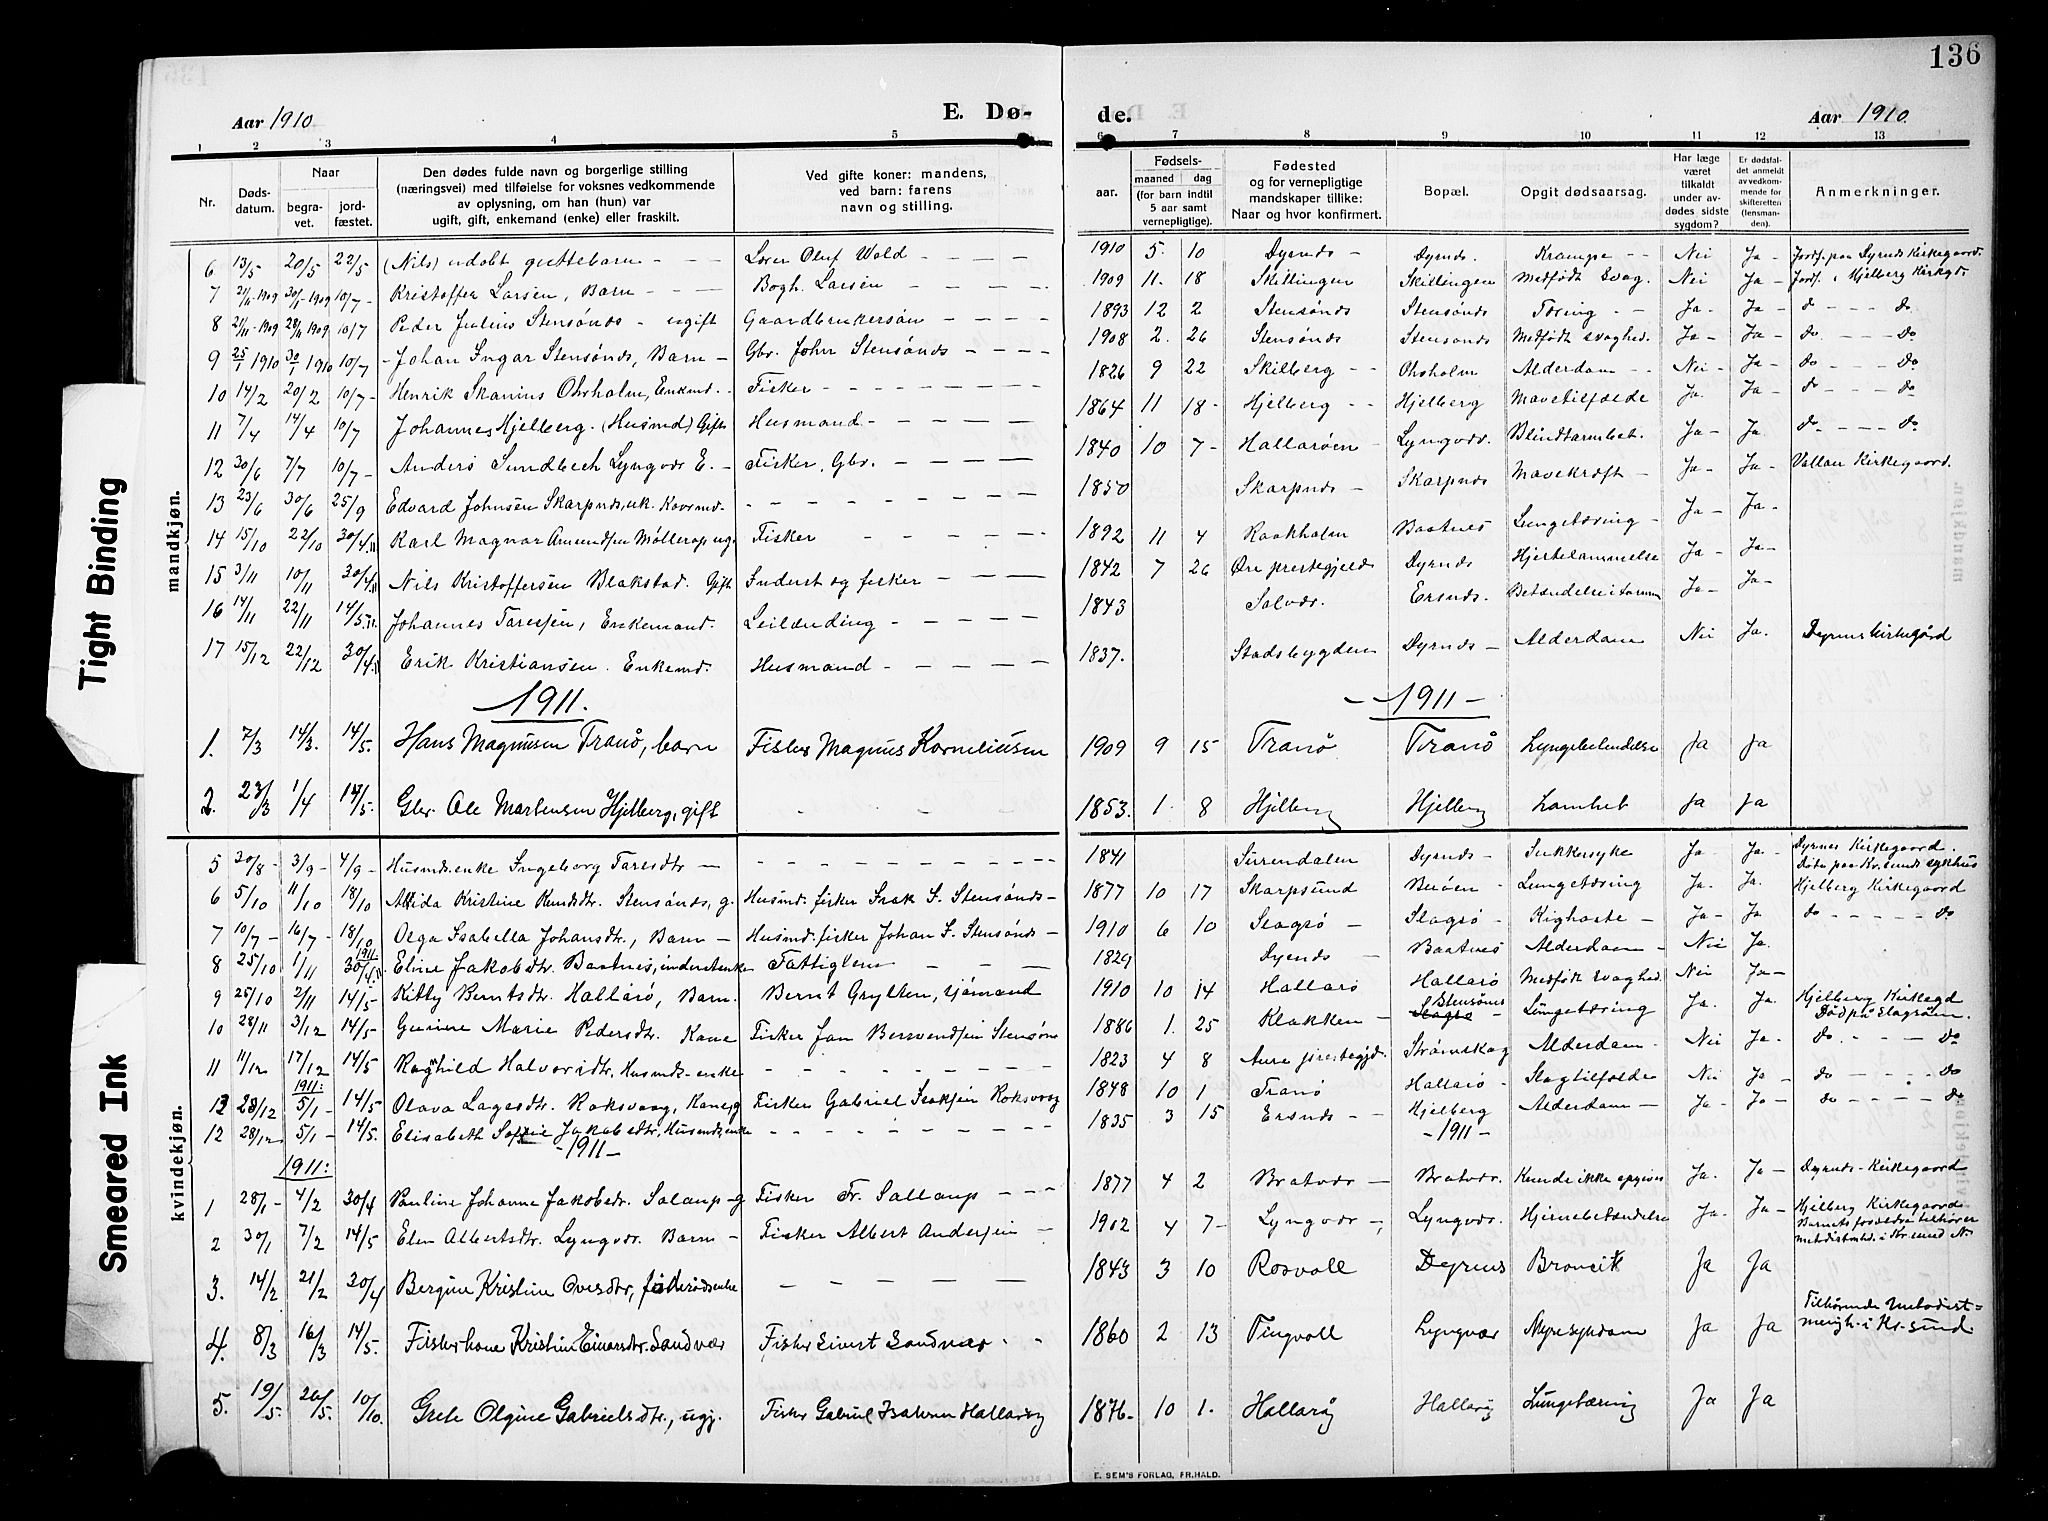 136
Aar 1910 E. Dø-
de. Aar 1910
1 2 3 4 5
6 7 8 9 10 11 12 13
Nr.
Døds-
datum.
Naar
begra-
vet.
jord-
fæstet.
Den dødes fulde navn og borgerlige stilling
(næringsvei) med tilføielse for voksnes vedkommende
av oplysning, om han (hun) var
ugift, gift, enkemand (enke) eller fraskilt.
Ved gifte koner: mandens,
ved barn: farens
navn og stilling.
aar.
Fødsels-
maaned dag
(for barn indtil
5 aar samt
vernepligtige).
Fødested
og for vernepligtige
mandskaper tillike:
Naar og hvor konfirmert.
Bopæl.
Opgit dødsaarsag.
Har læge
været
tilkaldt
under av-
dødes sidste
sygdom?
Er dødsfal-
det anmeldt
av vedkom-
mende for
skifteretten
(lensman-
den).
Anmerkninger.
mandkjøn.
6 13/5 20/5 22/5 (Nils) udøbt guttebarn Oluf Wold 1910 5. 10 Dyrnæs Dyrnæs. Krampe Nei Ja Jordf. paa Dyrnæs Kirkegaard.
7 21/11-1909 10/7 Kristoffer Larsen, Barn Bogh. Larsen 1909 11. 18 Skillingen Skillingen Medfødt Svag. Nei Ja Jordf. i Hjelberg Kirkgd.
8 21/11-1909 28/11 1909 10/7 Peder Julius Stensønæs - ugift Gaardbrukersøn 1893 12 2 Stensønæs Stensønæs Tæring Ja. Ja do do
9 25/1 1910 30/1 1910 10/7 Johan Ingar Stensønæs, Barn Gbr. John Stensønæs 1908 2. 26 Stensønæs Stensønæs Medfødt svaghed. Ja Ja do. Do
10 14/2 20/2 10/7 Henrik Skanius Ohrholm, Enkmd. Fisker 1826 9 22 Skilberg Ohsholm Alderdom Nei Ja do Do
11 7/4 14/4 10/7 Johannes Hjelberg. (Husmd) Gift Husmand 1864 11 18 Hjelberg Hjelberg Mavetilfælde Ja. Ja do Do
12 30/6 7/7 10/7 Anders Sundbech Lyngvær E. Fisker, Gbr. 1840 10 7 Hallarøen Lyngvær. Blindtarmbet. Ja Ja do Do
13 23/6 30/6 25/9 Edvard Johnsen Skarpnæs, uk. 1850 Skarpnæs Skarpnæs Mavekræft Ja Ja Vollan Kirkegaard.
14 15/10 22/10 30/4.11 Karl Magnar Møllerop ug. Fisker 1892 11 4 Raakholm Baatnes Lungetæring Ja Ja
15 3/11 10/11 30/4.11 Nils Kristoffersen Blakstad. Gift Inderst og fisker 1842 7 26 Øre prestegjeld Dyrnæs Hjertelammelse Ja Ja
16 14/11 22/11 14/5.11. Johannes Taresen, Enkemand. Leilænding 1843 Solvær. Ersnæs. Betændelse i tarmen Ja Ja
17 15/12 22/12 30/4.11 Erik Kristiansen. Enkemd. Husmand 1837. Stadsbygden Dyrnæs Alderdom Nei Ja. Dyrnes kirkegård
1911. 1911
1. 7/3 14/3. 14/5. Hans Magnusen Tranø, barn Fisker Magnus Korneliusen 1909 9 15 Tranø Tranø Lungebetendelse Ja Ja
2. 23/3 1/4 14/5. Gbr. Ole Martensen Hjelberg, gift 1853. 1. 8 Hjelberg Hjelberg Lamhet Ja Ja
kvindekjøn.
5 30/8 3/9 4/9 Husmdsenke Ingeborg Taresdtr 1841 Sirrendalen Dyrnæs Sukkersyke Ja Ja Dyrnes Kirkegaard. Døde paa Kr.sunds sykhus
6 5/10 11/10 18/10 Alida Kristine Knudsdtr. Stensønæs, g. Husmd. fisker Isak J. Stensønæs 1877 10 17 Skarpsund Buøen Lungetæring Ja. Ja. Hjelberg Kirkegaard
7 10/7 16/7 18/10 Olga Isabella Johansdtr., Barn Husmd. fisker Johan J. Stensønæs 1910 6 10 Slagsø Slagsø Kighoste Ja Ja do Do
8 25/10 1/11 30/4.11 1911 Eline Jakobsdtr. Baatnes, inderstenke Fattiglem 1829 Dyrnæs Baatnes Alderdom Nei Ja.
9 25/10 2/11 14/5 Kitty Berntsdtr. Hallarø, Barn. Bernt Grytten, sjømand 1910 10 14 Hallarø Hallarø Medfødt svaghed. Nei Ja
10 28/11 3/12 14/5 Gurine Marie Pedersdtr. Kone Fisker Jan Stensøen 1886 1. 25 Klakken Stensønæs Lungetæring Ja. Ja. Hjelberg Kirkegd
11 11/12 17/12 14/5 Ragnhild Halvorsdtr. Husmds-enke 1823 4 8 Aure prestegjd. Strømskag Alderdom Nei Ja do. Do
12 28/12 1911: 5/1 14/5 Olava Lagesdtr. Roksvaag, Kone, g Fisker Gabriel Isaksen Roksvaag 1848 10 1 Tranø Hallarø Slagtilfælde Nei Ja do Do
12 28/12 5/1 14/5. Elisabeth Sofie Jakobsdtr, Husmdsenke 1835 3 15 Ersnæs Hjelberg Alderdom Ja Ja do Do
1911: 1911 1911
1 28/1 4/2 30/4 Pauline Johanne Jakobsdr. Salaup g Fisker Fr. Sallaup 1877 4 2 Bratvær Bratvær. Kunde ikke opgives Ja. Ja Dyrnæs Kirkegaard
2 30/1 7/2 14/5 Elen Albertsdtr. Lyngvær. Barn Fisker Albert Andersen 1902 4 7 Lyngvær Lyngvær. Hjernebetændelse Ja. Ja Hjelberg Kirkegaard. Barnets forældre tilhører
3. 14/2 21/2 30/4 Bergine Kristine Ovesdtr, føderådsenke 1843 3 10 Rosvoll Dyrnes Bronkit Ja Ja
4. 8/3 16/3 14/5. Fiskerkone Kristine Einarsdtr. Sandvær Fisker Sivert Sandvær 1860 2 13 Tingvoll Lyngvær Nyresykdom Ja Ja Tilhørende Metodist=
menigh. i Kr.sund.
5. 19/5. 26/5. 10/10. Grete Olgine Gabrielsdtr., ugj. Fisker Gabriel Isaksen Hallarøy 1876. 10 1. Hallarøy Hallarøy Lungetæring Ja Ja
E. SEM'S FORLAG, FR.HALD.
Tight Binding
Smeared Ink